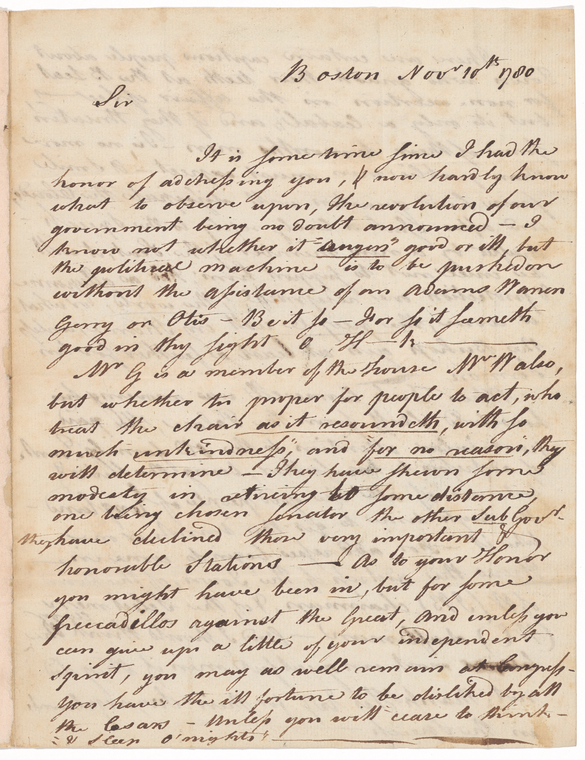 Boston Novr 10th 1780
Sir
It is some time since I had the
honor of addressing you, & now hardly know
what to observe upon, the revolution of our
government being no doubt announced — I
know not whether it "augurs" good or ill, but
the political machine is to be pushed on
without the assistance of an Adams Warren
Gerry or Otis — Be it so — For so it seemeth
good in thy sight O H—k
Mr G is a member of the House Mr W also,
but whether tis proper for people to act, who
treat the chair as it resoundeth, with so
much unkindness, and "for no reason, they
will determine — They have shewn some
modesty in retireing to some distance,
one being chosen senator the other Sub Govr.
they have declined those very important &
honorable stations — As to your Honor
you might have been in, but for some
peccadillos against the Great, and unless you
can give up a little of your independent
spirit, you may as well remain at Congress —
You have the ill fortune to be disliked by all
the Cesars — Unless you will cease to think —
"& sleep o'nights"